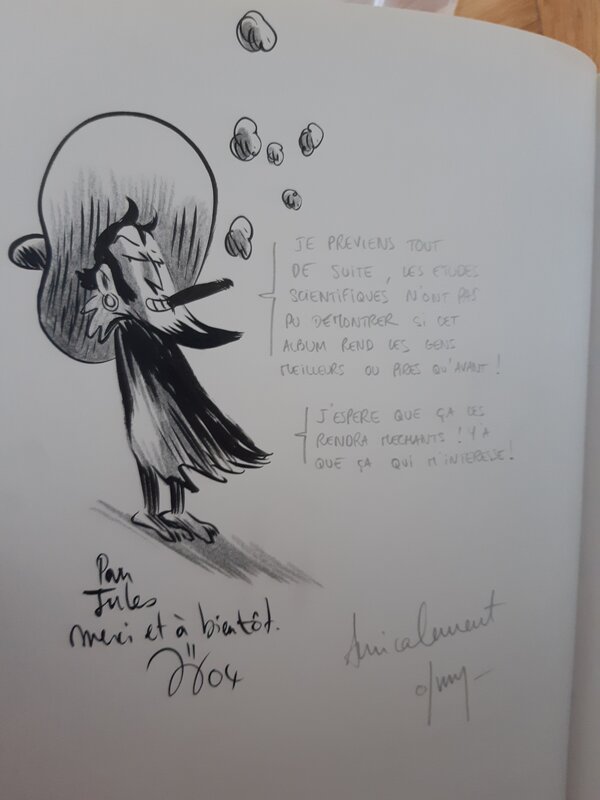 JE PREVIENS TOUT
DE SUITE, LES ETUDES
SCIENTIFIQUES N'ONT PAS
PU DEMONTRER SI CET
ALBUM REND LES GENS
MEILLEURS OU PIRES QU'AVANT !
J'ESPERE QUE ÇA LES
RENDRA MECHANTS ! Y'A
QUE ÇA QUI M'INTERESSE !
Pour
Jules
merci et à bientôt.
04
Amicalement